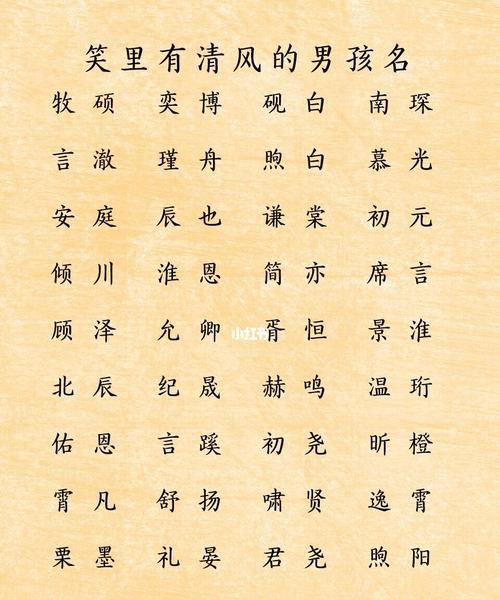 笑里有清风的男孩名
牧硕 奕博 砚白 南琛
言澈 瑾舟 煦白 慕光
安庭 辰也 谦棠 初元
倾川 淮恩 简亦 席言
顾泽 允卿 胥恒 景淮
小红书
北辰 纪晟 赫鸣 温珩
佑恩 言蹊 初尧 昕橙
霄凡 舒扬 啸贤 逸霄
栗墨 礼晏 君尧 煦阳